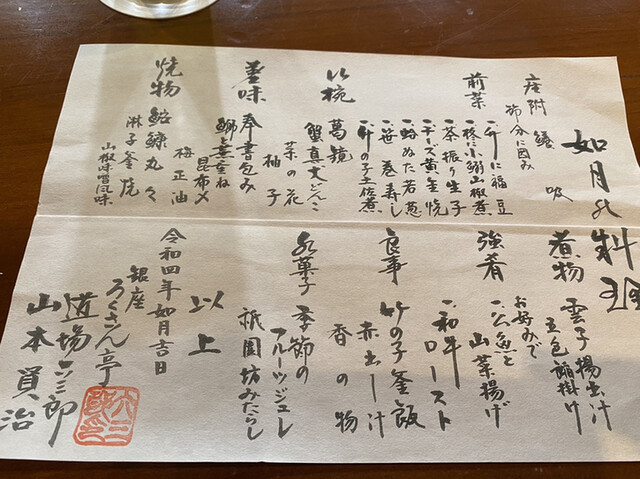 如月の料理
座附
節分に因み
鰻
吸
前菜
一、升に福豆
一、柊に小鰯山椒煮
一、茶振り生子
一、チーズ黄金焼
一、蛤ぬた若葱
一、笹巻寿し
一、竹の子土佐煮
小椀
葛鏡
蟹真丈どんこ
菜の花
柚子
善味
奉書包み
鰤と蕪重ね
昆布〆
梅正油
焼物
鮟鱇丸々
淋子釜焼
山椒味噌風味
煮物
雲子揚出汁
五色餡掛け
強肴
お好みで
一、公魚と
山菜揚げ
一、和牛ロースト
食事
竹の子釜飯
赤出し汁
香の物
水菓子
季節の
フルーツジュレ
祇園坊みたらし
以上
令和四年如月吉日
銀座
ろくさん亭
道場六三郎
山本員治